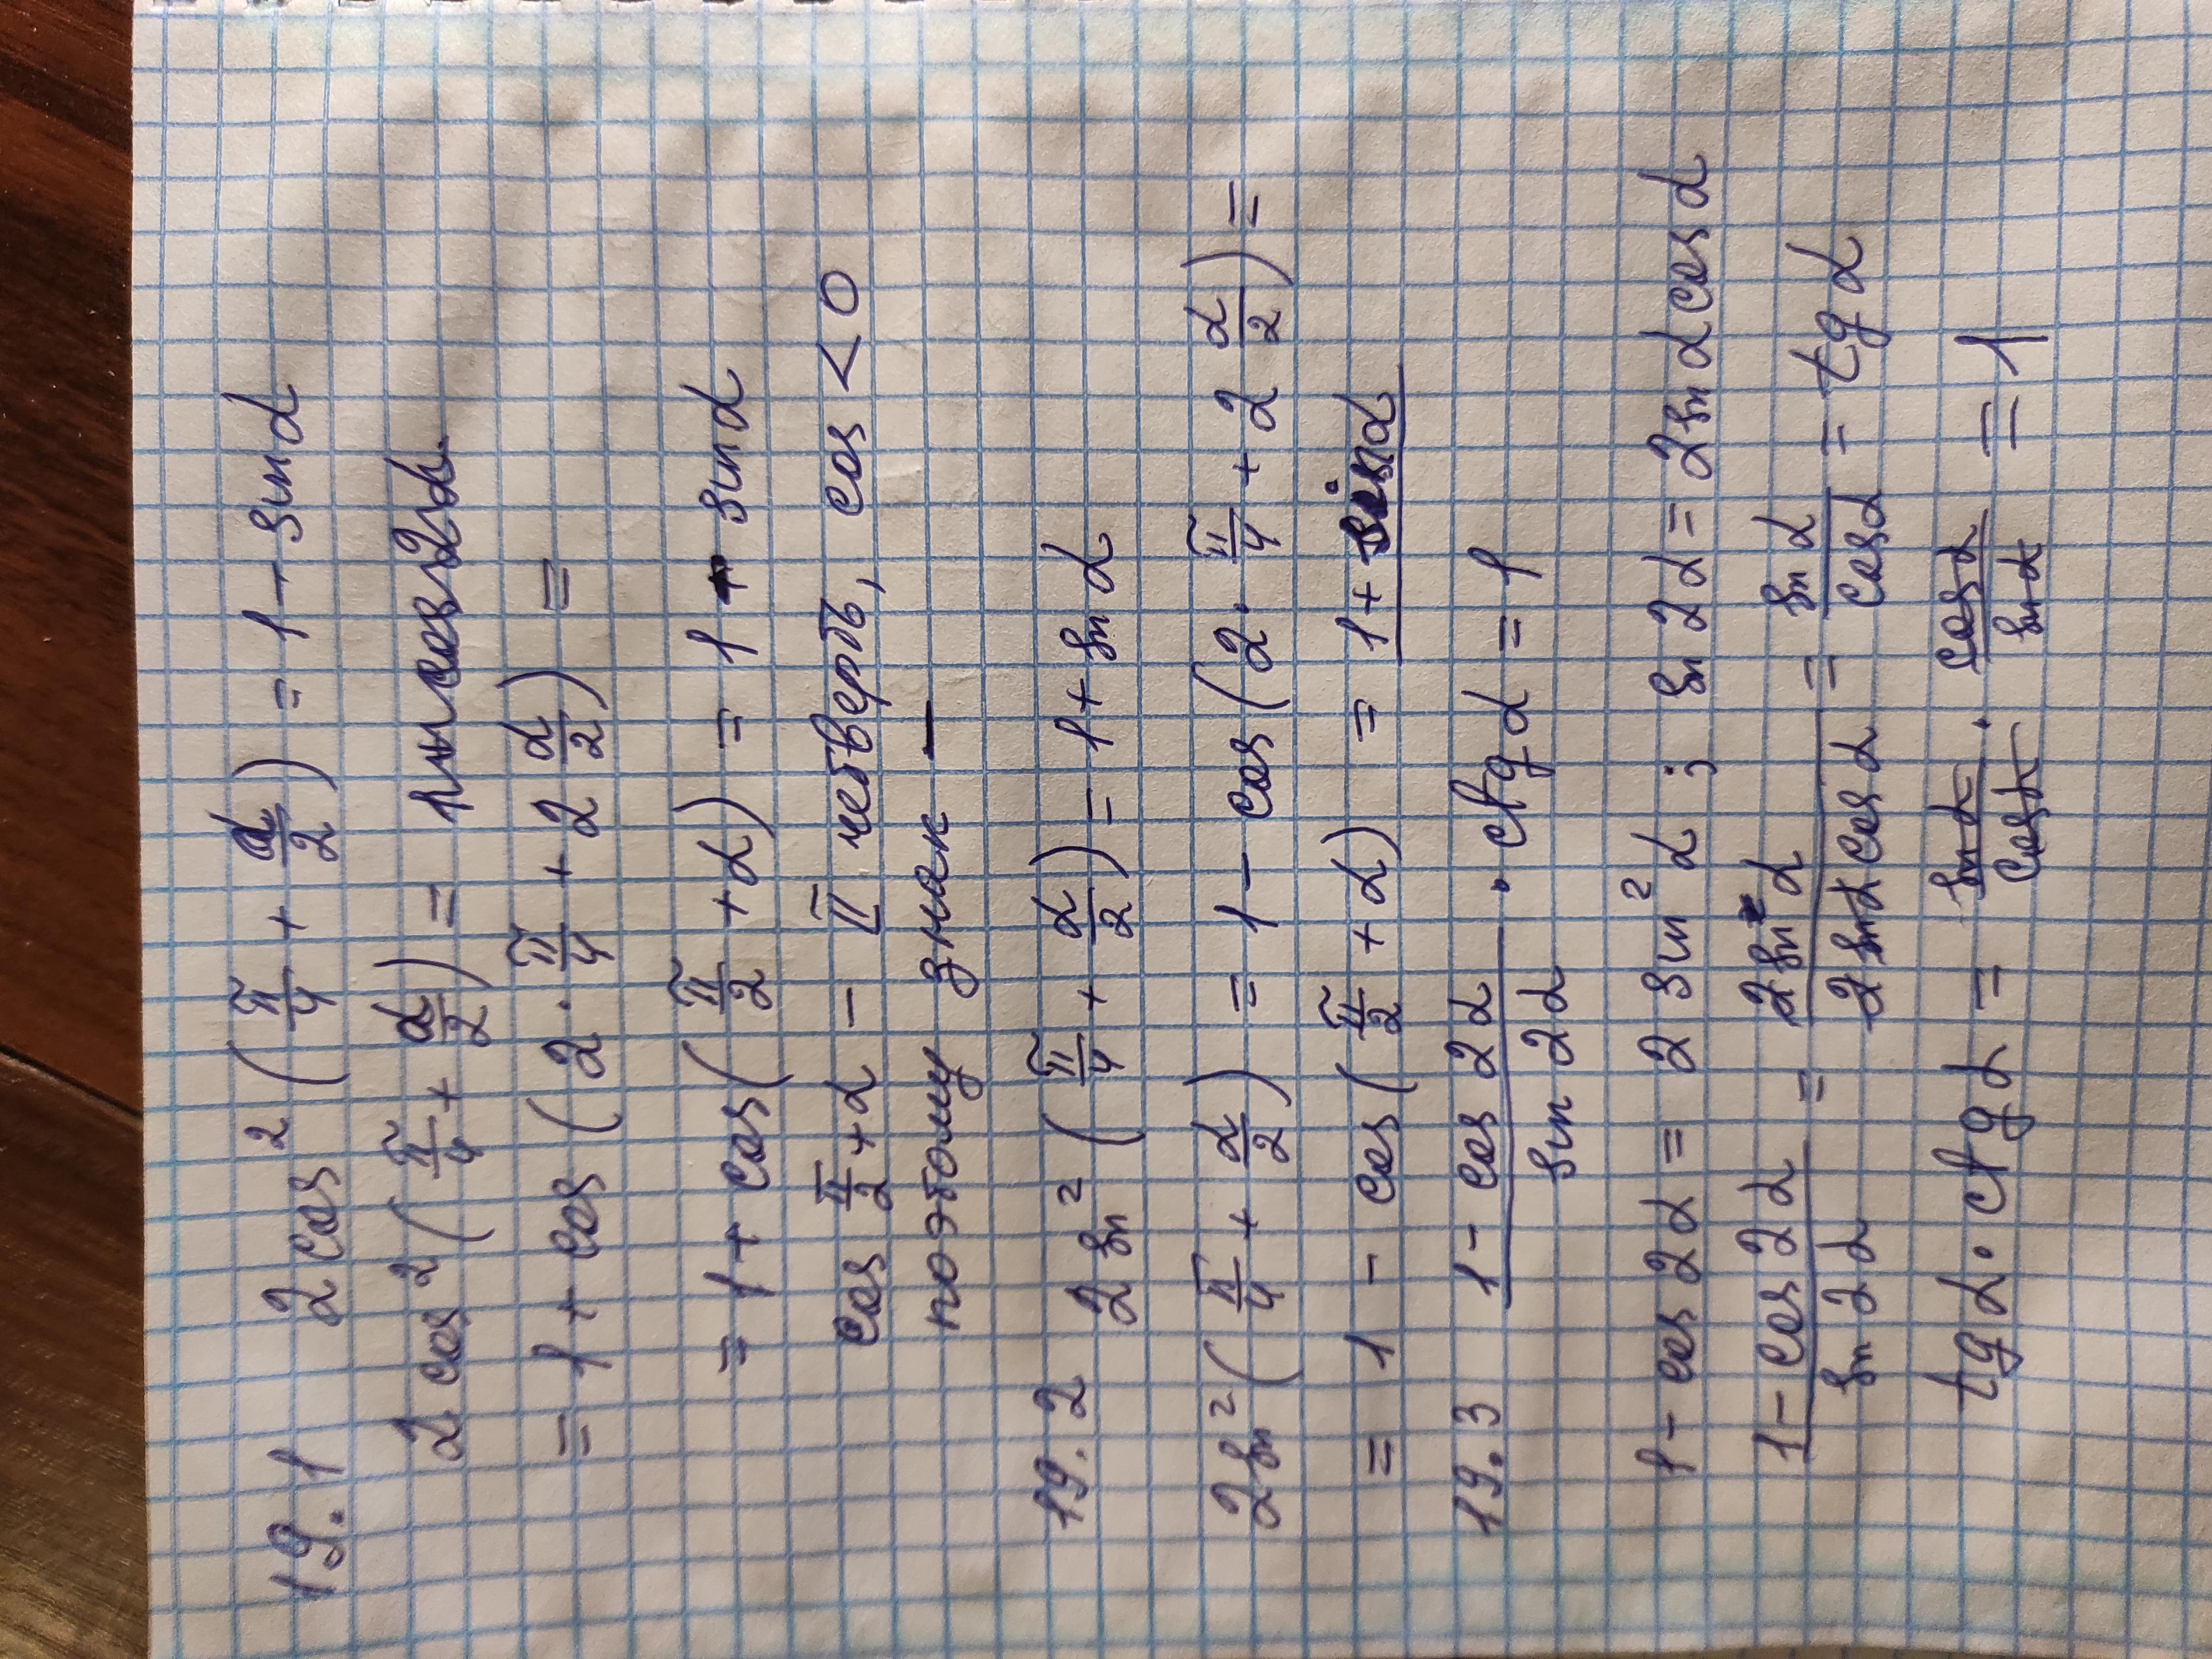 19.1 2 cos² (π/4 + α/2) = 1 - sin α
2 cos² (π/4 + α/2) =
= 1 + cos (2 · π/4 + 2 α/2) =
= 1 + cos (π/2 + α) = 1 - sin α
cos π/2 + α - II четверть, cos < 0
поэтому знак —
19.2 2 sin² (π/4 + α/2) = 1 + sin α
2 sin² (π/4 + α/2) = 1 - cos (2 · π/4 + 2 α/2) =
= 1 - cos (π/2 + α) = 1 + sin α
19.3 (1 - cos 2α)/(sin 2α) · ctg α = 1
1 - cos 2α = 2 sin² α ; sin 2α = 2 sin α cos α
(1 - cos 2α)/(sin 2α) = (2 sin² α)/(2 sin α cos α) = (sin α)/(cos α) = tg α
tg α · ctg α = (sin α)/(cos α) · (cos α)/(sin α) = 1